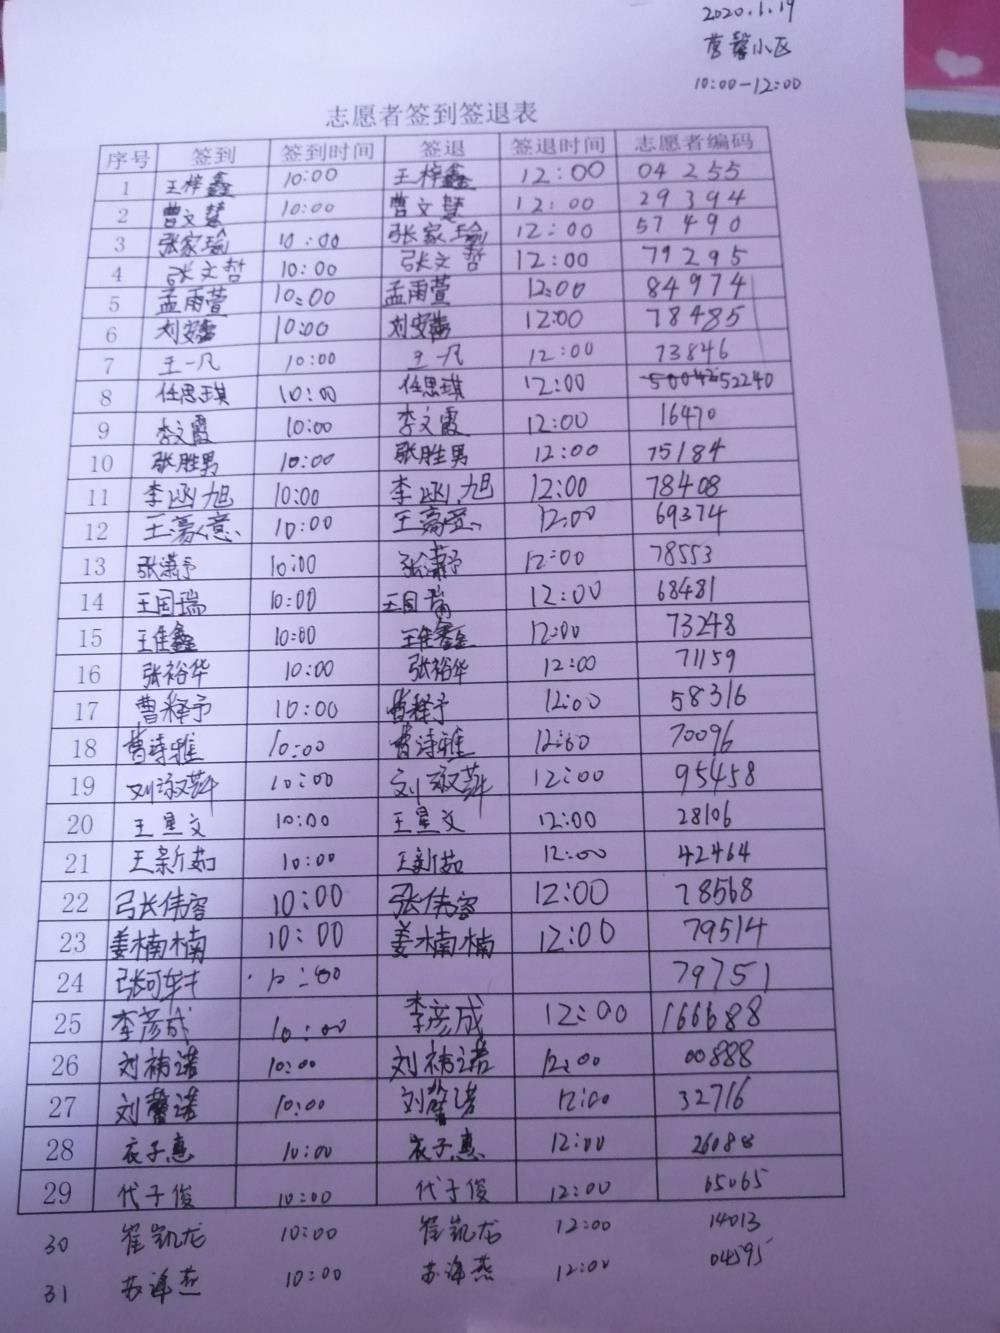 2020.1.19
营馨小区
10:00-12:00
志愿者签到签退表
序号 签到 签到时间 签退 签退时间 志愿者编码
1 王梓鑫 10:00 王梓鑫 12:00 04255
2 曹文慧 10:00 曹文慧 12:00 29394
3 张家瑜 10:00 张家瑜 12:00 57490
4 张文哲 10:00 张文哲 12:00 79295
5 孟雨萱 10:00 孟雨萱 12:00 84974
6 10:00 12:00 78485
7 王一凡 10:00 王一凡 12:00 73846
8 任思琪 10:00 任思琪 12:00 52240
9 李文霞 10:00 李文霞 12:00 16470
10 张胜男 10:00 张胜男 12:00 75184
11 李函旭 10:00 李函旭 12:00 78408
12 10:00 12:00 69374
13 张潇予 10:00 张潇予 12:00 78553
14 王国瑞 10:00 王国瑞 12:00 68481
15 王佳鑫 10:00 王佳鑫 12:00 73248
16 张裕华 10:00 张裕华 12:00 71159
17 曹释予 10:00 曹释予 12:00 58316
18 曹诗雅 10:00 曹诗雅 12:00 70096
19 10:00 12:00 95458
20 王星文 10:00 王星文 12:00 28106
21 王新茹 10:00 王新茹 12:00 42464
22 张伟容 10:00 张伟容 12:00 78568
23 姜楠楠 10:00 姜楠楠 12:00 79514
24 张可轩 79751
25 李彦成 10:00 李彦成 12:00 166688
26 刘祎诺 10:00 刘祎诺 12:00 00888
27 刘馨诺 10:00 刘馨诺 12:00 32716
28 衣子惠 10:00 衣子惠 12:00 26088
29 代子俊 10:00 代子俊 12:00 65065
30 崔凯龙 10:00 崔凯龙 12:00 14013
31 苏海燕 10:00 苏海燕 12:00 04595